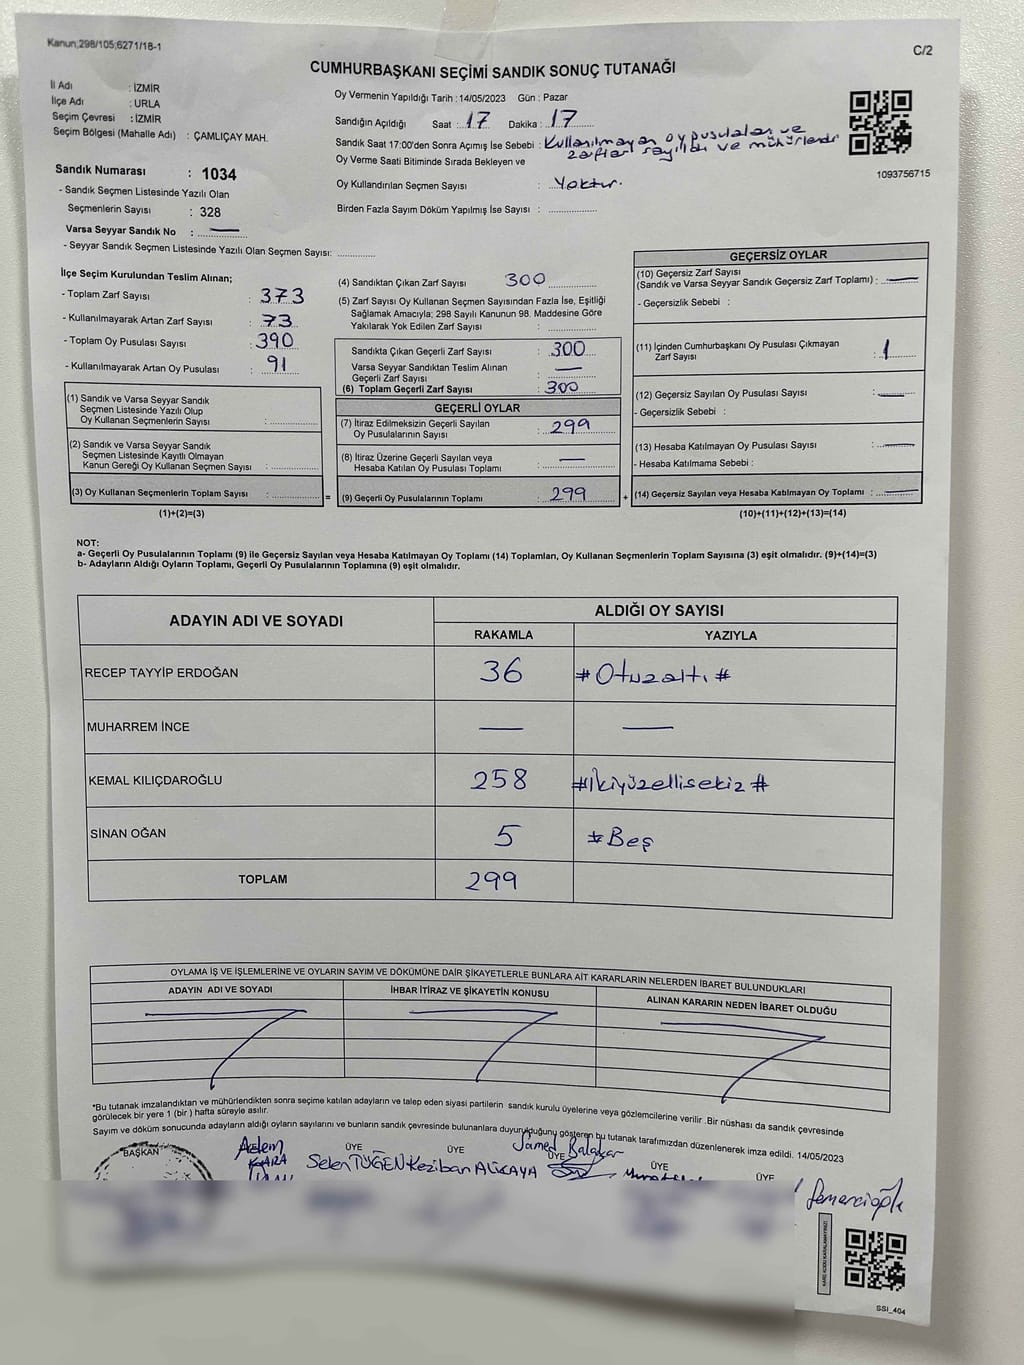 Kanun;298/105;6271/18-1
C/2
CUMHURBAŞKANI SEÇİMİ SANDIK SONUÇ TUTANAĞI
İl Adı : İZMİR
İlçe Adı : URLA
Seçim Çevresi : İZMİR
Seçim Bölgesi (Mahalle Adı) : ÇAMLIÇAY MAH.
Sandık Numarası : 1034
- Sandık Seçmen Listesinde Yazılı Olan
Seçmenlerin Sayısı : 328
Varsa Seyyar Sandık No :
- Seyyar Sandık Seçmen Listesinde Yazılı Olan Seçmen Sayısı:
Oy Vermenin Yapıldığı Tarih : 14/05/2023 Gün : Pazar
Sandığın Açıldığı Saat : 17 Dakika : 17
Sandık Saat 17:00'den Sonra Açımış İse Sebebi : Kullanılmayan oy pusulaları ve
zarfları sayıldı ve mühürlendi
Oy Verme Saati Bitiminde Sırada Bekleyen ve
Oy Kullandırılan Seçmen Sayısı : Yoktur.
Birden Fazla Sayım Döküm Yapılmış İse Sayısı :
1093756715
İlçe Seçim Kurulundan Teslim Alınan;
- Toplam Zarf Sayısı : 373
- Kullanılmayarak Artan Zarf Sayısı : 73
- Toplam Oy Pusulası Sayısı : 390
- Kullanılmayarak Artan Oy Pusulası : 91
(1) Sandık ve Varsa Seyyar Sandık
Seçmen Listesinde Yazılı Olup
Oy Kullanan Seçmenlerin Sayısı :
(2) Sandık ve Varsa Seyyar Sandık
Seçmen Listesinde Kayıtlı Olmayan
Kanun Gereği Oy Kullanan Seçmen Sayısı :
(3) Oy Kullanan Seçmenlerin Toplam Sayısı : =
(1)+(2)=(3)
(4) Sandıktan Çıkan Zarf Sayısı 300
(5) Zarf Sayısı Oy Kullanan Seçmen Sayısından Fazla İse, Eşitliği
Sağlamak Amacıyla; 298 Sayılı Kanunun 98. Maddesine Göre
Yakılarak Yok Edilen Zarf Sayısı :
Sandıkta Çıkan Geçerli Zarf Sayısı : 300
Varsa Seyyar Sandıktan Teslim Alınan
Geçerli Zarf Sayısı : —
(6) Toplam Geçerli Zarf Sayısı : 300
GEÇERLİ OYLAR
(7) İtiraz Edilmeksizin Geçerli Sayılan
Oy Pusulalarının Sayısı : 299
(8) İtiraz Üzerine Geçerli Sayılan veya
Hesaba Katılan Oy Pusulası Toplamı : —
(9) Geçerli Oy Pusulalarının Toplamı : 299 +
GEÇERSİZ OYLAR
(10) Geçersiz Zarf Sayısı
(Sandık ve Varsa Seyyar Sandık Geçersiz Zarf Toplamı) : —
- Geçersizlik Sebebi :
(11) İçinden Cumhurbaşkanı Oy Pusulası Çıkmayan
Zarf Sayısı : 1
(12) Geçersiz Sayılan Oy Pusulası Sayısı : —
- Geçersizlik Sebebi :
(13) Hesaba Katılmayan Oy Pusulası Sayısı : —
- Hesaba Katılmama Sebebi :
(14) Geçersiz Sayılan veya Hesaba Katılmayan Oy Toplamı : —
(10)+(11)+(12)+(13)=(14)
NOT:
a- Geçerli Oy Pusulalarının Toplamı (9) ile Geçersiz Sayılan veya Hesaba Katılmayan Oy Toplamı (14) Toplamları, Oy Kullanan Seçmenlerin Toplam Sayısına (3) eşit olmalıdır. (9)+(14)=(3)
b- Adayların Aldığı Oyların Toplamı, Geçerli Oy Pusulalarının Toplamına (9) eşit olmalıdır.
ADAYIN ADI VE SOYADI ALDIĞI OY SAYISI
RAKAMLA YAZIYLA
RECEP TAYYİP ERDOĞAN 36 #Otuzaltı#
MUHARREM İNCE — —
KEMAL KILIÇDAROĞLU 258 #İkiyüzellisekiz#
SİNAN OĞAN 5 #Beş
TOPLAM 299
OYLAMA İŞ VE İŞLEMLERİNE VE OYLARIN SAYIM VE DÖKÜMÜNE DAİR ŞİKAYETLERLE BUNLARA AİT KARARLARIN NELERDEN İBARET BULUNDUKLARI
ADAYIN ADI VE SOYADI İHBAR İTİRAZ VE ŞİKAYETİN KONUSU ALINAN KARARIN NEDEN İBARET OLDUĞU
*Bu tutanak imzalandıktan ve mühürlendikten sonra seçime katılan adayların ve talep eden siyasi partilerin sandık kurulu üyelerine veya gözlemcilerine verilir .Bir nüshası da sandık çevresinde
görülecek bir yere 1 (bir ) hafta süreyle asılır.
Sayım ve döküm sonucunda adayların aldığı oyların sayılarını ve bunların sandık çevresinde bulunanlara duyurulduğunu gösteren bu tutanak tarafımızdan düzenlenerek imza edildi. 14/05/2023
BAŞKAN ÜYE ÜYE ÜYE ÜYE ÜYE
Adem KARA
Selen TÜGEN Keziban ALİKAYA Samed Balaban
SSI_404